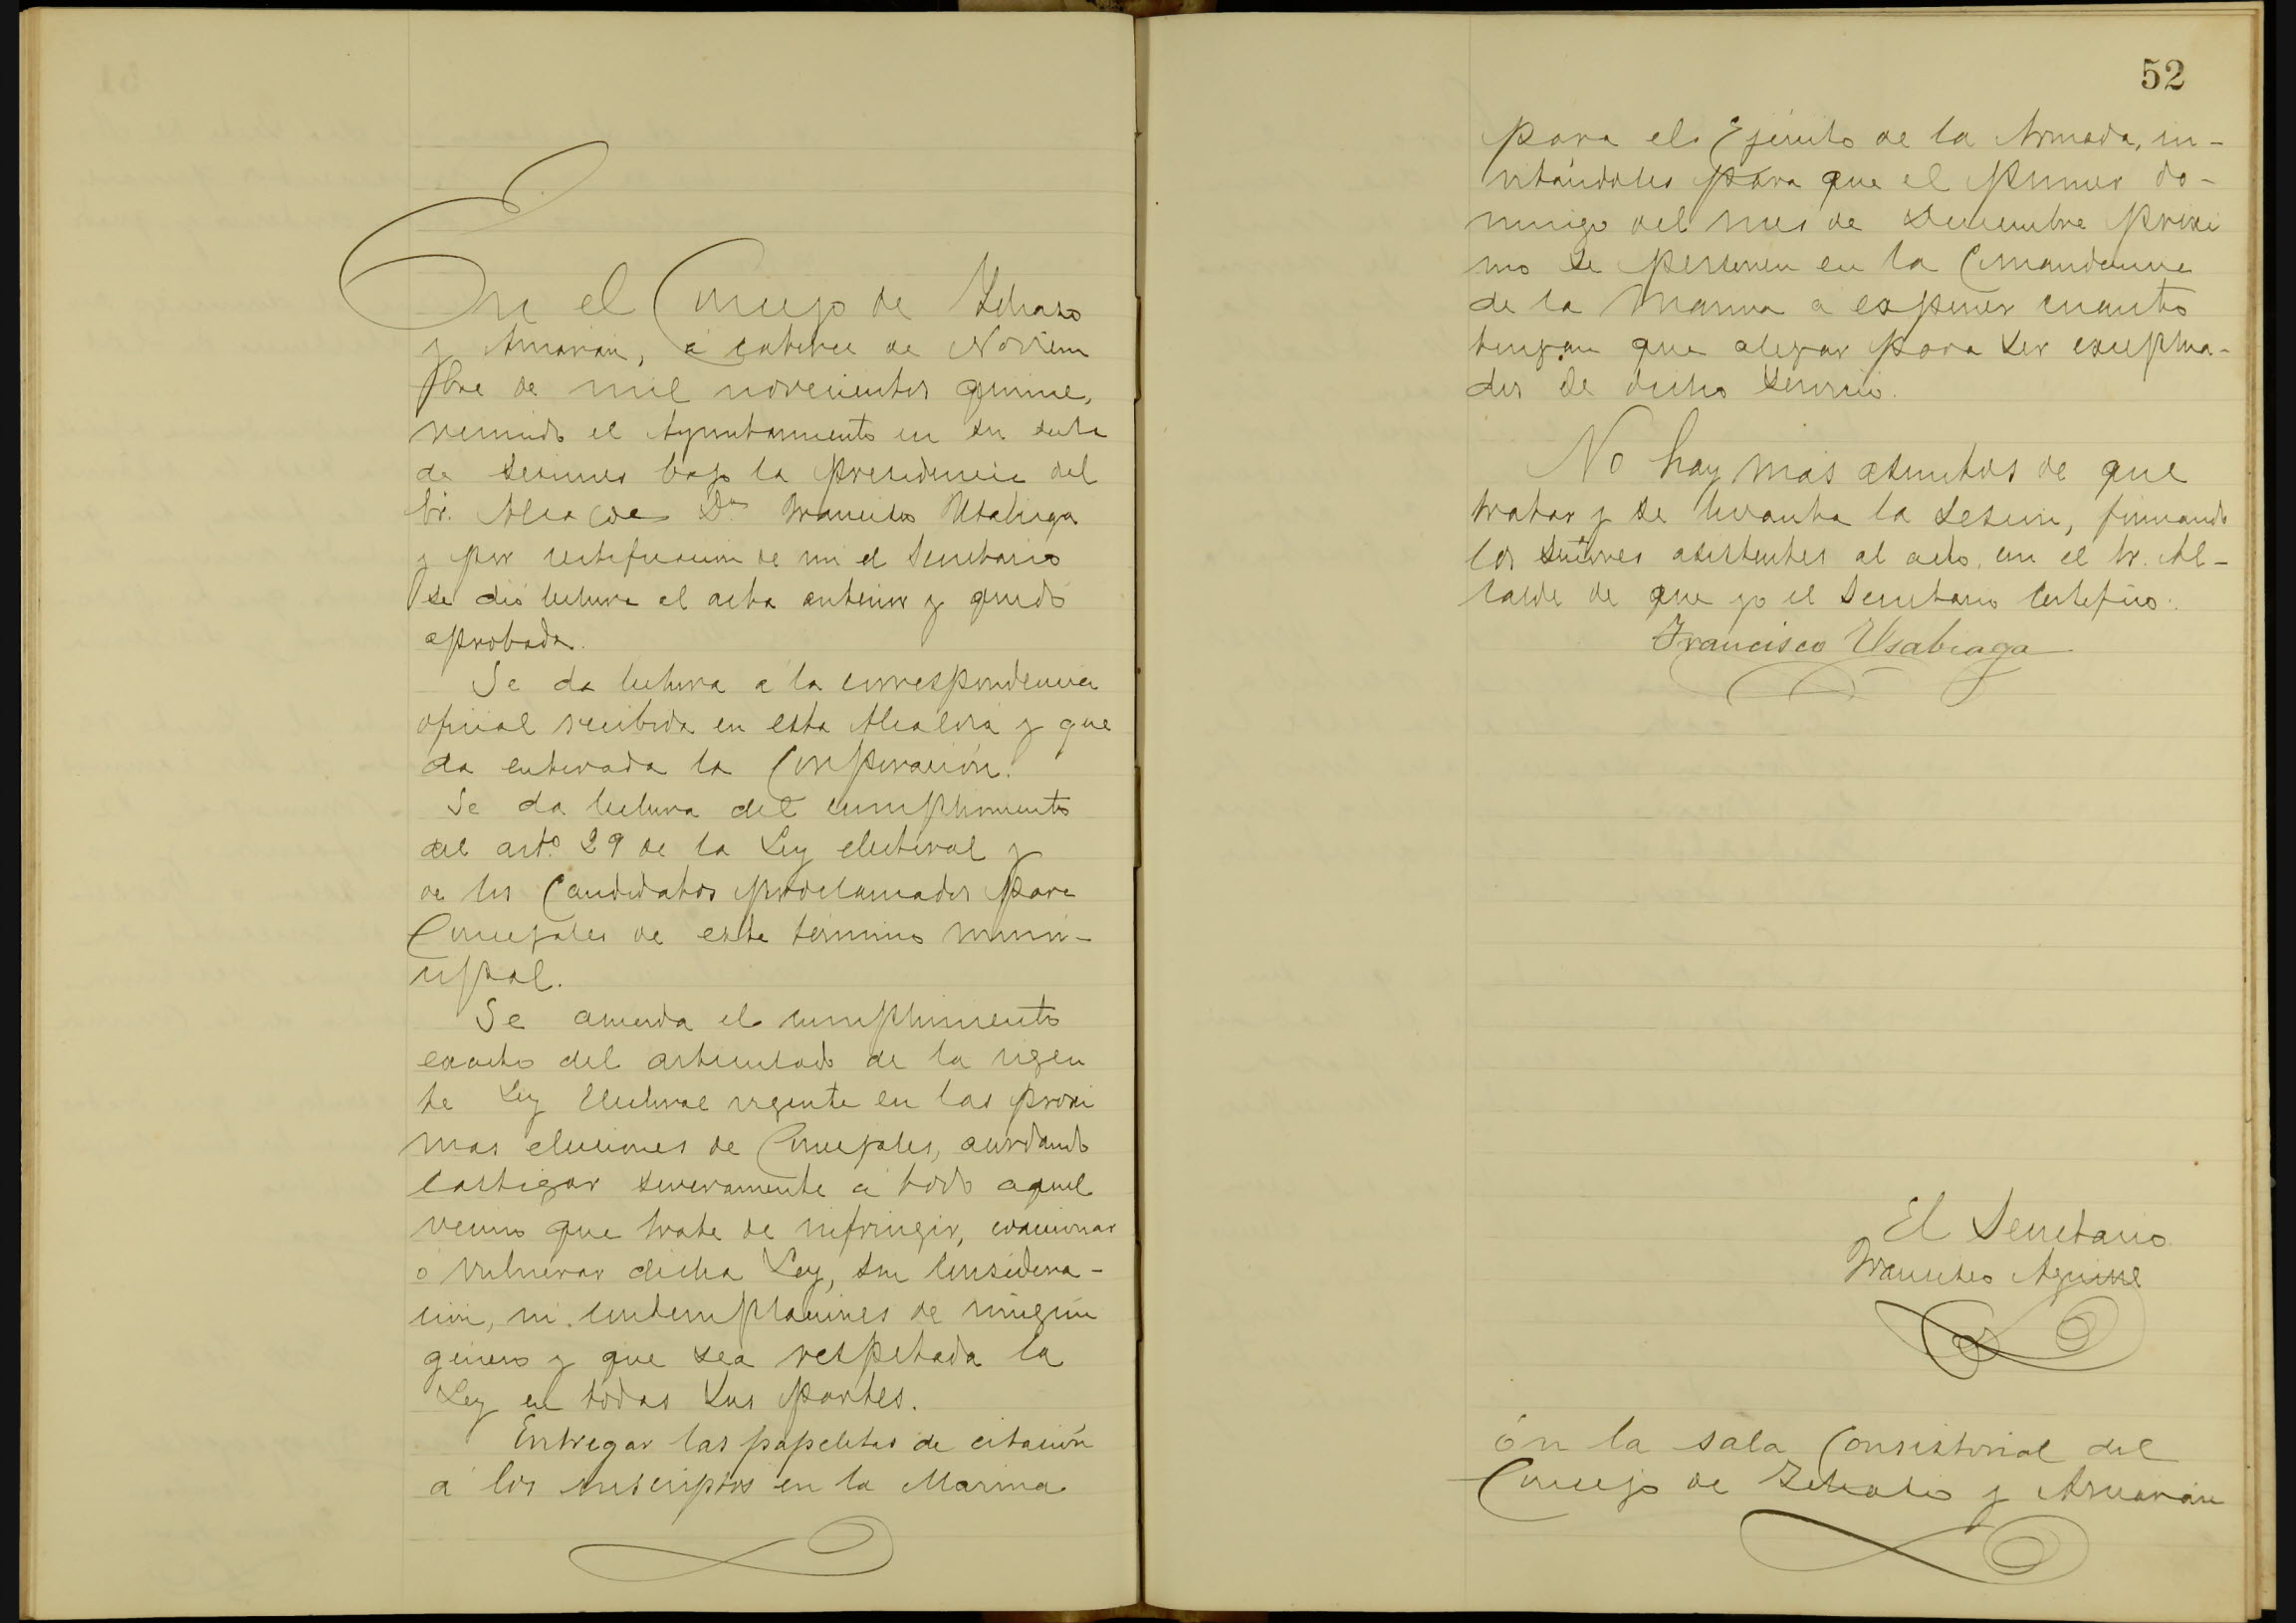 En el Concejo de Ichaso
y Arriarán, á catorce de Noviem
bre de mil novecientos quince,
reunido el Ayuntamiento en su sala
de sesiones bajo la presidencia del
Sr. Alcalde Dn Francisco Usabiaga
y por certificacion de mi el Secretario
se dió lectura al acta anterior y quedó
aprobada.
Se da lectura a la correspondencia
oficial recibida en esta Alcaldia y que
da enterada la Corporación.
Se da lectura del cumplimento
del artº 29 de la Ley electoral y
de los Candidatos proclamados para
Concejales de este término muni-
cipal.
Se acuerda el cumplimento
exacto del articulado de la vigen
te Ley Electoral vigente en las proxi
mas elecciones de Concejales, acordando
castigar severamente á todo aquel
vecino que trate de infringir, coaccionar
o vulnerar dicha Ley, sin considera-
cion, ni contemplaciones de ningún
género y que sea respetada la
Ley en todas sus partes.
Entregar las papeletas de citación
á los inscriptos en la Marina
52
para el Ejército de la Armada, in-
vitándoles para que el primer do-
mingo del mes de Diciembre próxi
mo se personen en la Comandancia
de la Marina a exponer cuanto
tengan que alegar para ser exceptua-
dos de dicho servicio.
No hay más asuntos de que
tratar y se levanta la sesion, firmando
los señores asistentes al acto, con el Sr. Al-
calde de que yo el Secretario certifico.
Francisco Usabiaga
El Secretario
Francisco Aguirre
En la sala Consistorial del
Concejo de Ichaso y Arriarán